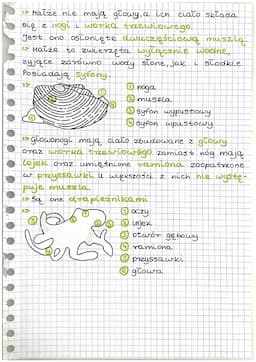 ⇒ Małże nie mają głowy, a ich ciało składa
się z nogi i worka trzewiowego.
Jest ono osłonięte dwuczęściową muszlą.
⇒ Małże to zwierzęta wyłącznie wodne,
żyjące zarówno wody słone, jak i słodkie
Posiadają syfony.
① noga
② muszla
③ syfon wypustowy
④ syfon wpustowy
⇒ Głowonogi mają ciało zbudowane z głowy
oraz worka trzewiowego zamiast nóg mają
lejek oraz umięśnione ramiona zaopatrzone
w przyssawki U większości z nich nie wystę-
puje muszla.
⇒ Są one drapieżnikami
① oczy
② lejek
③ otwór gębowy
④ ramiona
⑤ przyssawki
⑥ głowa